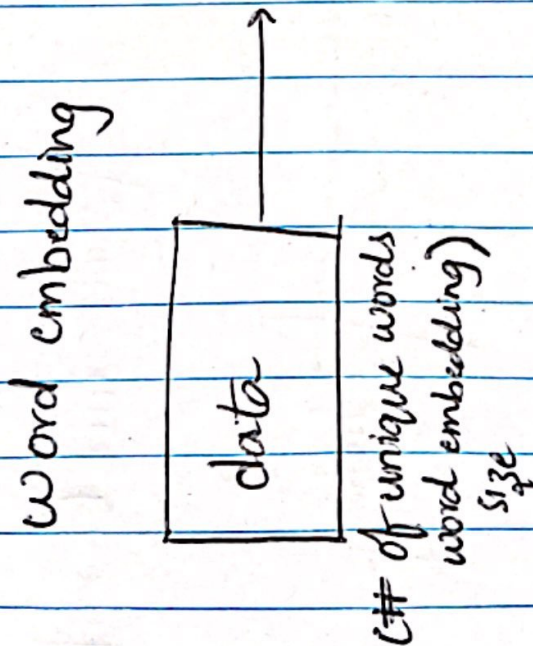 word embedding
data
(# of unique words
word embedding)
size